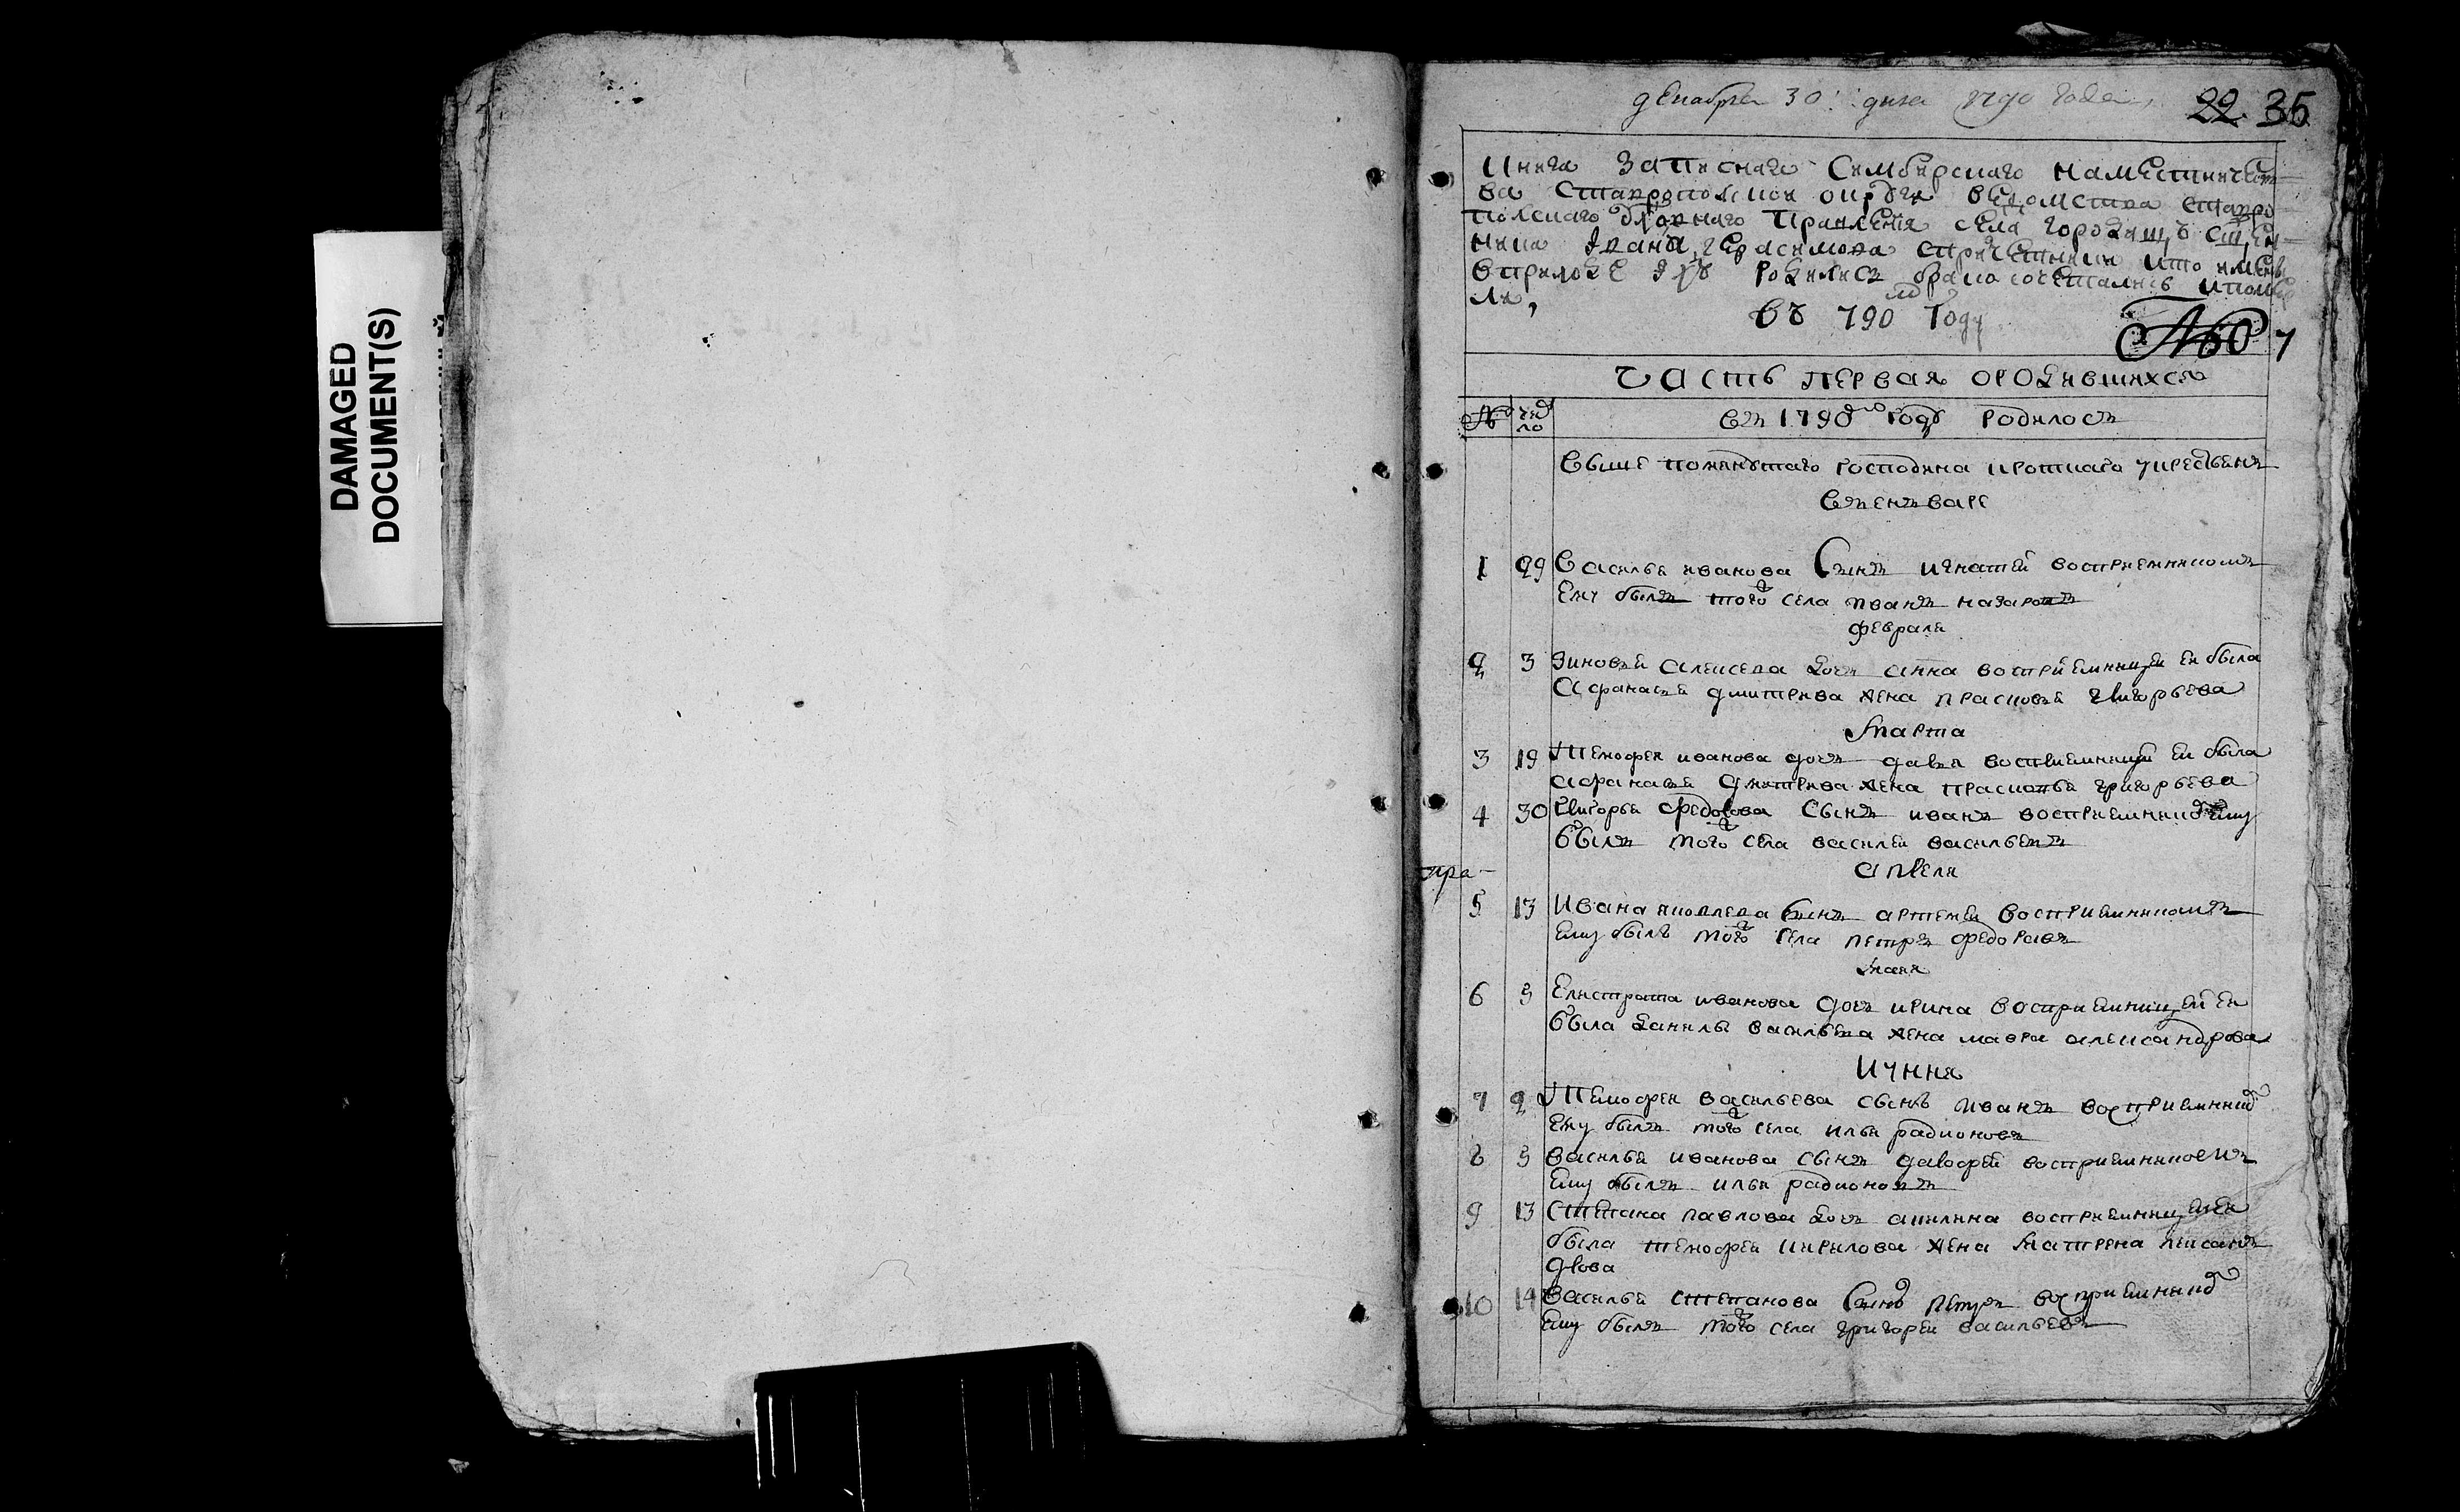 DAMAGED
DOCUMENT(S)
декабря 30: дня 1790 года,
22 35
Книга записная Симбирскаго наместничест
ва Ставропольской округи ведомства ставро
польскаго духовнаго правления села городищъ священ
ника Ивана Герасимова спричетники кто имены
вприходе ихъ родились брако сочетались ипомер
ли,
въ 790 году
№ 7
Часть первая ородившихся
№ число въ 1790мъ годъ родилось
Выше помянутаго господина кроткаго у крестьянъ
въ енъваре
1 29 Василья иванова Сынъ игнатей восприемникомъ
Ему былъ того села иванъ назаровъ
февраля
2 3 Зиновьей алексеева дочь анна восприемницеи еи была
Афанасьей дмитрива жена прасковьей григорьева
Марта
3 19 Темофея иванова дочь дарья восприемницеи еи была
афанасьей дмитрива жена прасковья григорьева
4 30 Григорья федорова Сынъ иванъ восприемникомъ ему
былъ того села василей васильевъ
Апреля
5 13 Ивана яковлева сынъ артемей восприемникомъ
ему былъ того села петръ федоравъ
Мая
6 5 Елистрата иванова дочь ирина восприемницей еи
была данилы васильева жена мавра александрова
Июния
7 2 Темофея васильева сынъ иванъ восприемником
Ему былъ того села илья радионовъ
8 5 Василья иванова сынъ дорофей восприемникомъ
ему былъ илья радионовъ
9 13 Степана павлова дочь акилина восприемницеи еи
была темофея кирилова жена матрена лексанъ
дрова
10 14 Василья степанова Сынъ петръ восприемником
ему былъ того села григореи васильевъ